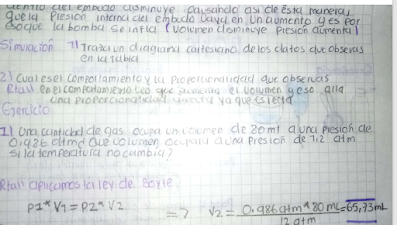 dentro del embudo disminuye causando asi de esta manera
que la presion interna del embudo vaya en un aumento y es por
eso que la bomba se infla (volumen disminuye presion aumenta)
Simulacion 1) Traza un diagrama cartesiano de los datos que observas
en la tabla
2) Cual es el comportamiento y la proporcionalidad que observas
Rta// en el comportamiento veo que aumenta el volumen y eso alla
una proporcionalidad ya que es
Ejercicio
1) Una cantidad de gas ocupa un volumen de 80 ml a una presion de
0,986 atm ¿ Que volumen ocupara a una presion de 1.2 atm
si la temperatura no cambia?
Rta// aplicamos la ley de Boyle.
P1*V1=P2*V2 => V2 = 0.986 atm * 80 mL = 65,73 mL
12 atm